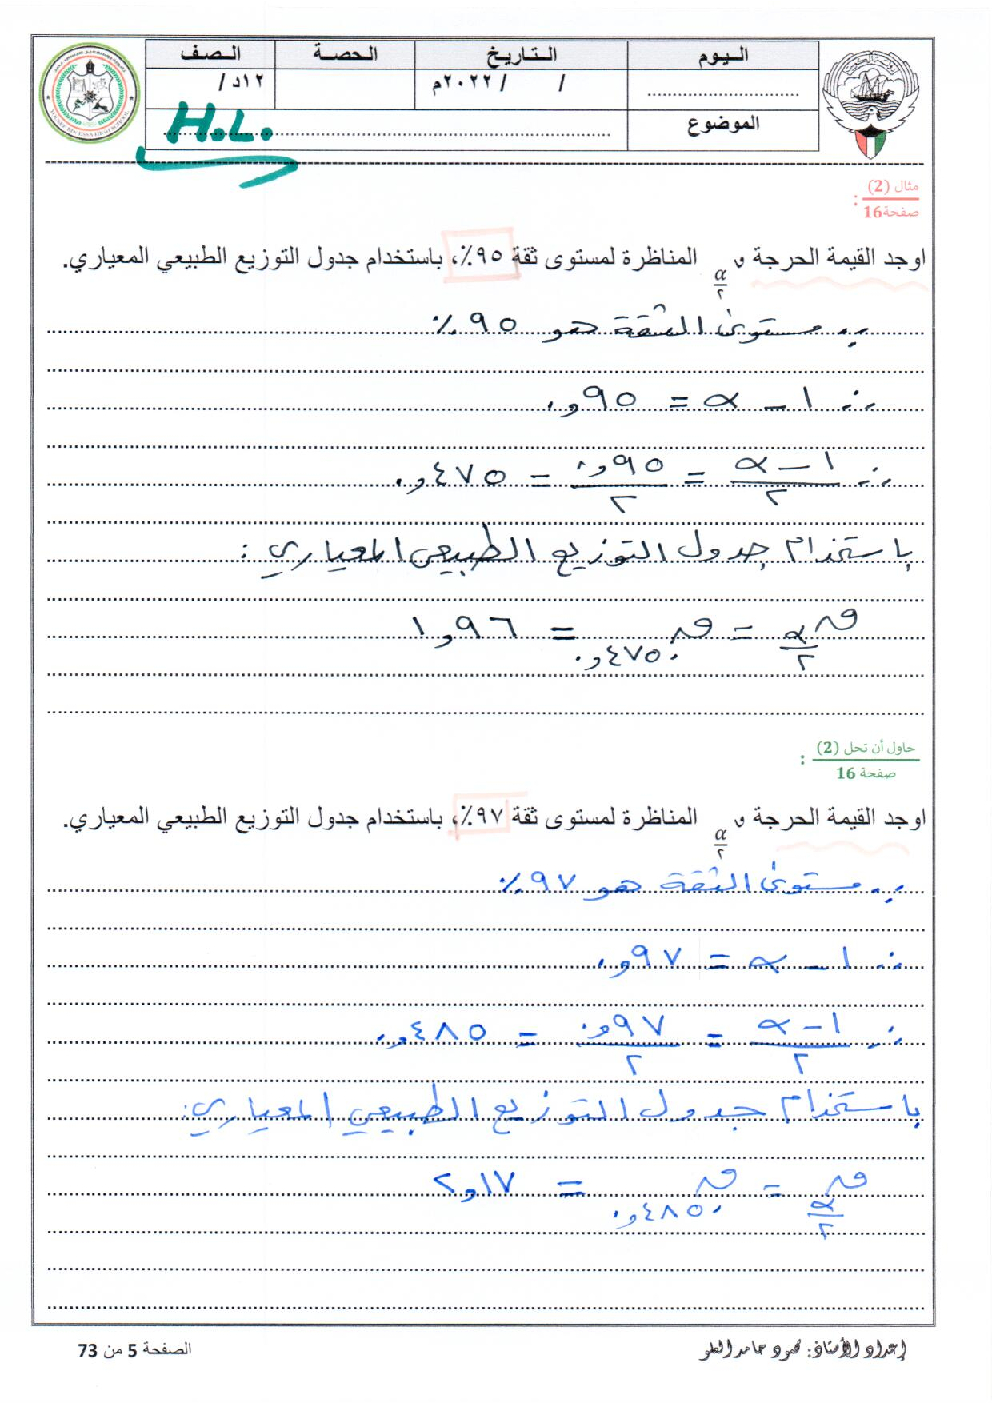 اليوم التاريخ الحصة الصف
/ / ٢٠٢٢م ١٢د /
الموضوع H.L.
مثال (2)
صفحة16 :
اوجد القيمة الحرجة ق α/٢ المناظرة لمستوى ثقة ٩٥٪، باستخدام جدول التوزيع الطبيعي المعياري.
∵ مستوى الثقة هو ٩٥٪
∴ ١ − α = ٠,٩٥
∴ (١ − α)/٢ = ٠,٩٥/٢ = ٠,٤٧٥
باستخدام جدول التوزيع الطبيعي المعياري :
ق α/٢ = ق ٠,٤٧٥٠ = ١,٩٦
حاول أن تحل (2)
صفحة 16 :
اوجد القيمة الحرجة ق α/٢ المناظرة لمستوى ثقة ٩٧٪، باستخدام جدول التوزيع الطبيعي المعياري.
∵ مستوى الثقة هو ٩٧٪
∴ ١ − α = ٠,٩٧
∴ (١ − α)/٢ = ٠,٩٧/٢ = ٠,٤٨٥
باستخدام جدول التوزيع الطبيعي المعياري:
ق α/٢ = ق ٠,٤٨٥٠ = ٢,١٧
إعداد الأستاذ: محمود حامد الطو
الصفحة 5 من 73